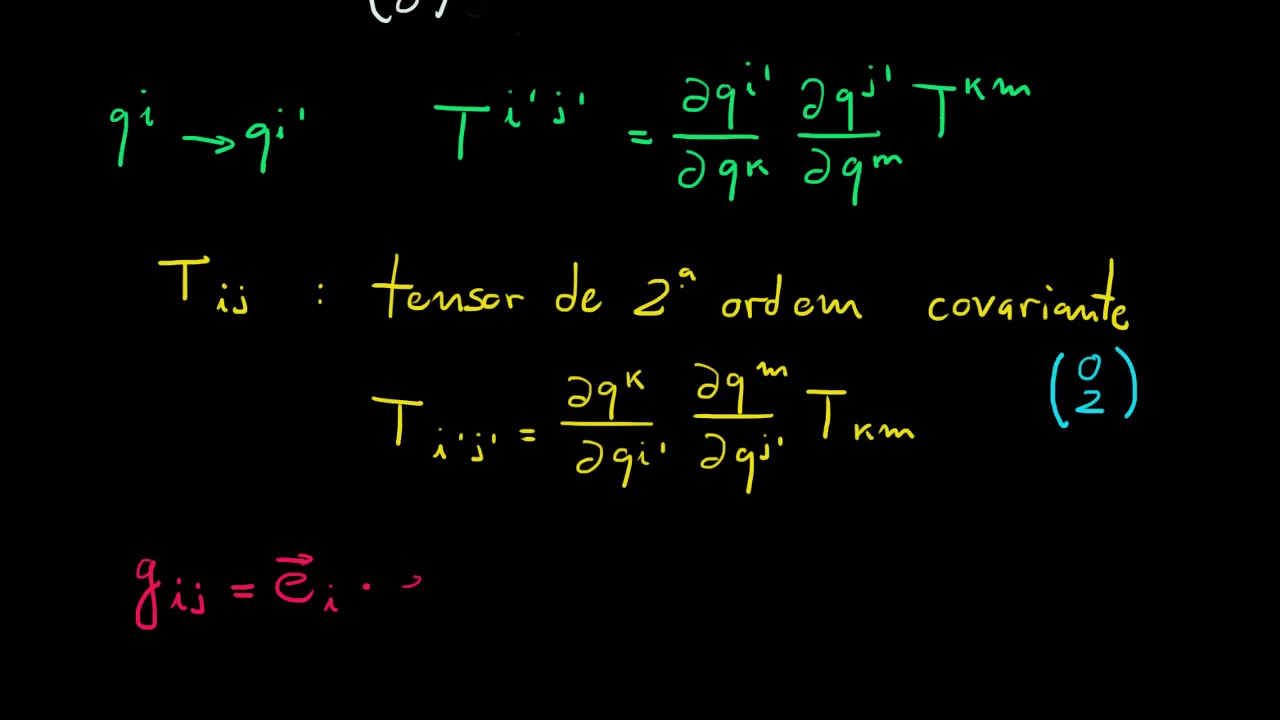 qⁱ → qⁱ' Tⁱ'ʲ' = ∂qⁱ'/∂qᵏ ∂qʲ'/∂qᵐ Tᵏᵐ
T_ij : tensor de 2ª ordem covariante
T_i'j' = ∂qᵏ/∂qⁱ' ∂qᵐ/∂qʲ' T_km (0 2)
g_ij = e⃗_i ·